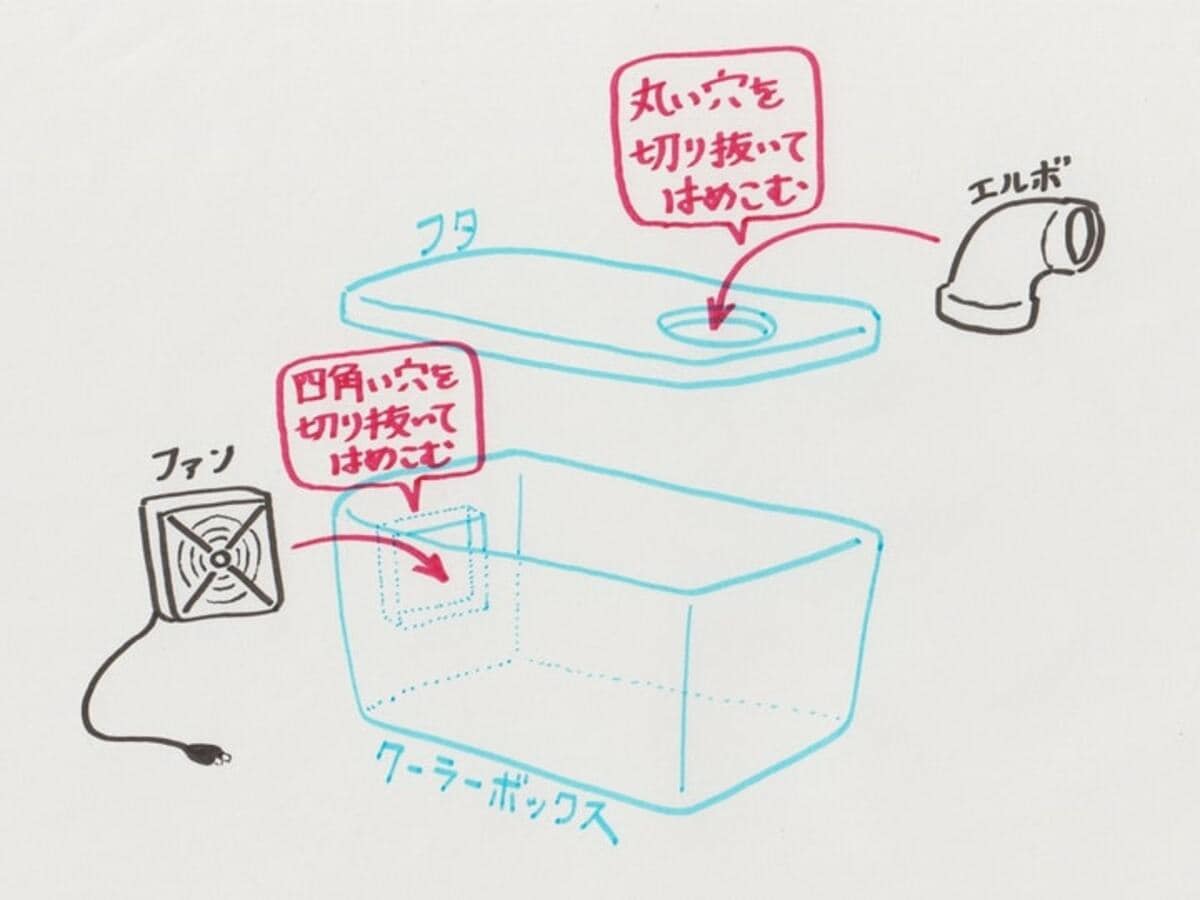 丸い穴を
切り抜いて
はめこむ
エルボ
フタ
四角い穴を
切り抜いて
はめこむ
ファン
クーラーボックス